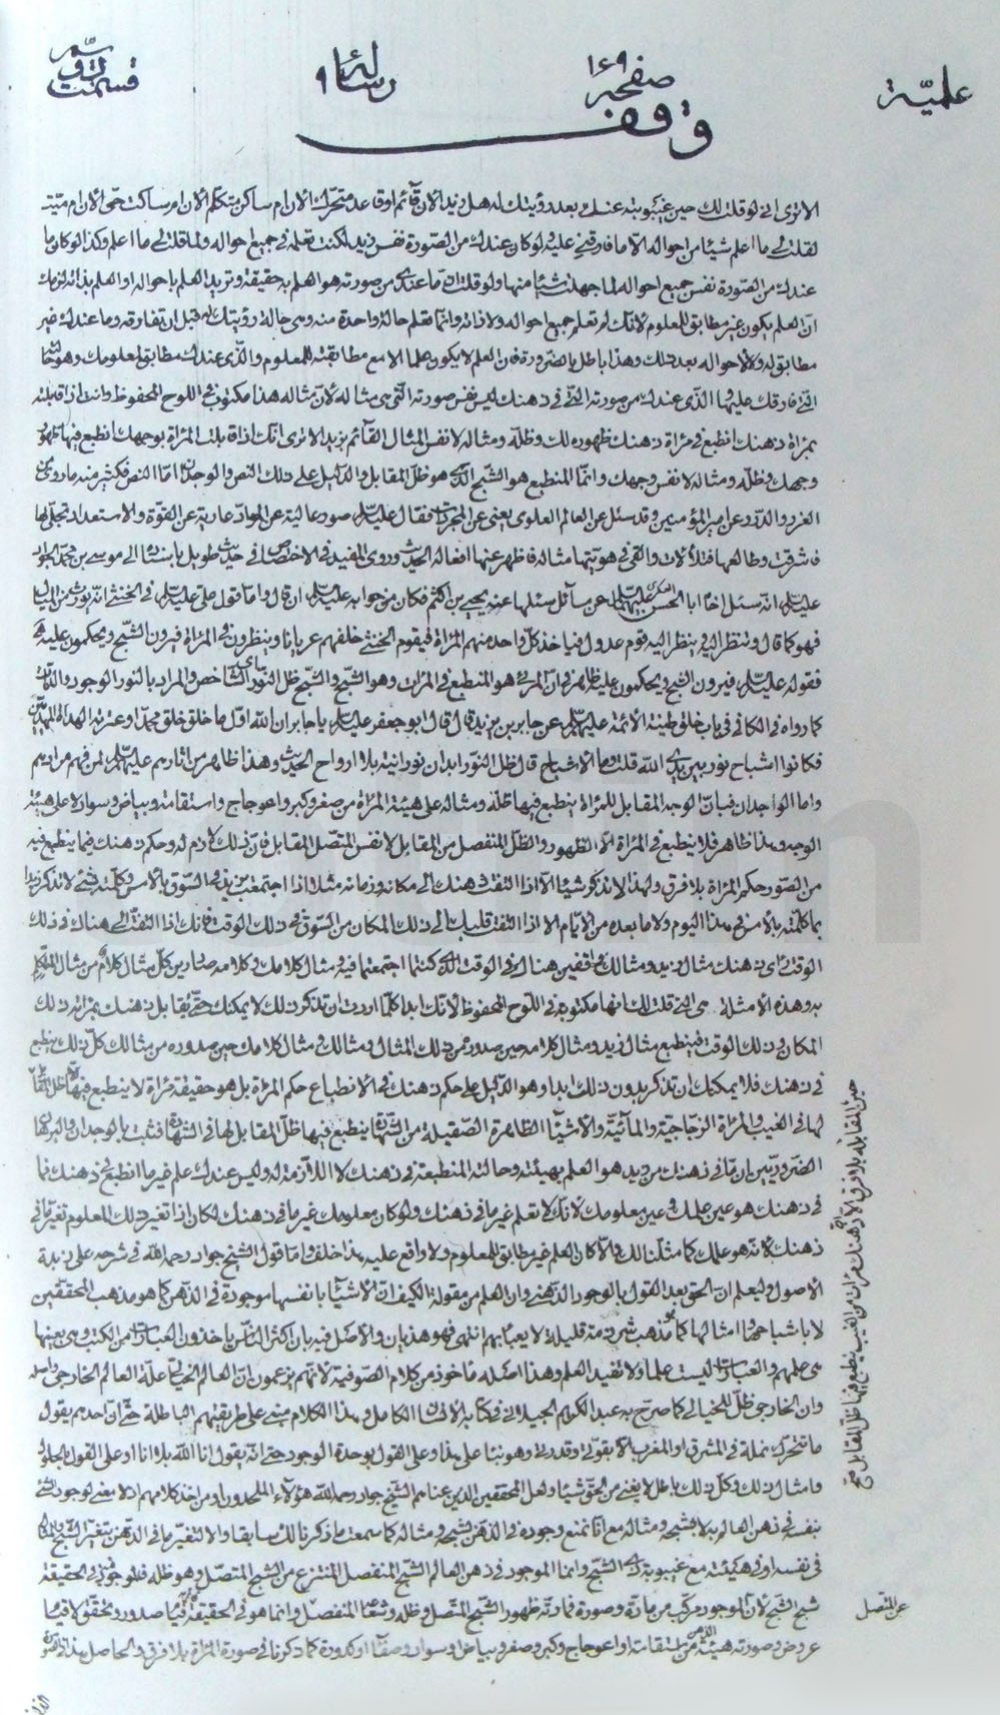 علميّة صفحة ١٤٩ رسالة ٩ قسمت
وقف
الا ترى انى لو قلت لك حين غيبوبته عنك و بعد رؤيتك له هل زيد الان قائم او قاعد متحرك الان ام ساكن متكلم الان ام ساكت حى الان ام ميت
لقلت لى ما اعلم شيئا من احواله الا ما فارقنى عليه و لو كان عندك من الصورة نفس زيد لكنت تعلمه فى جميع احواله و لما قلت لى ما اعلم و كذا لو كان ما
عندك من الصورة نفس جميع احواله لما جهلت شيئا منها و لو قلت ان ما عندى من صورته هو العلم به حقيقة و تريد العلم باحواله او العلم بذاته لزمك
ان العلم يكون غير مطابق للمعلوم لانك لم تعلم جميع احواله و لا ذاته و انما تعلم حالة واحدة منه و هى حالة رؤيتك له قبل ان تفارقه و ما عندك غير
مطابق له و لا لاحواله بعد ذلك و هذا باطل بالضرورة فان العلم لا يكون علما الا مع مطابقته للمعلوم و الذى عندك مطابق لمعلومك و هو حالته
التى فارقك عليها الذى عندك من صورته التى فى ذهنك ليس نفس صورته التى هى مثاله لان مثاله هذا مكتوب فى اللوح المحفوظ و انت اذا قابلته
بمراة ذهنك انطبع فى مراة ذهنك ظهوره لك و ظله و مثاله لا نفس المثال القائم بزيد الا ترى انك اذا قابلت المراة بوجهك انطبع فيها ظهور
وجهك و ظله و مثاله لا نفس وجهك و انما المنطبع هو الشبح الذى هو ظل المقابل و الدليل على ذلك النص و الوجدان اما النص فكثير منه ما روى فى
الغرر و الدرر عن امير المؤمنين و قد سئل عن العالم العلوى يعنى عن المجردات فقال عليه السلام صور عالية عن المواد عارية عن القوة و الاستعداد تجلى لها
فاشرقت و طالعها فتلألأت و القى فى هويتها مثاله فاظهر عنها افعاله الحديث و روى المفيد فى الاختصاص فى حديث طويل باسناده الى موسى بن محمد الجواد
عليه السلام انه سئل اخاه ابا الحسن العسكرى عليهما السلام عن مسائل سئلها عنه يحيى بن اكثم فكان من جوابه عليه السلام ان قال و اما قول على عليه السلام فى الخنثى انه يورث من المبال
فهو كما قال و ينظر اليه قوم عدول فيأخذ كل واحد منهم المراة فيقوم الخنثى خلفهم عريانا و ينظرون فى المراة فيرون الشبح و يحكمون عليه
فقوله عليه السلام فيرون الشبح و يحكمون عليه ظاهر فى ان المرئى هو المنطبع فى المرات و هو الشبح و الشبح ظل النور اى الشاخص و المراد بالنور الوجود و الذات
كما رواه فى الكافى فى باب خلق طينة الائمة عليهم السلام عن جابر بن يزيد قال قال ابو جعفر عليه السلام يا جابر ان الله اول ما خلق خلق محمدا و عترته الهداة المهتدين
فكانوا اشباح نور بين يدى الله قلت و ما الاشباح قال ظل النور ابدان نورانية بلا ارواح الحديث و هذا ظاهر من اثارهم عليهم السلام لمن فهم مرادهم
و اما الوجدان فبان الوجه المقابل للمراة ينطبع فيها ظله و مثاله على هيئة المراة من صغر و كبر و اعوجاج و استقامة و بياض و سواد لا على هيئة
الوجه و هذا ظاهر فلا ينطبع فى المراة الا الظهور و الظل المنفصل من المقابل لا نفس المتصل المقابل فان ذلك لازم له و حكم ذهنك فيما ينطبع فيه
من الصور حكم المراة بلا فرق و لهذا لا تذكر شيئا الا اذا التفت ذهنك الى مكانه و زمانه مثلا اذا اجتمعت بزيد فى السوق بالامس و كلمته بشئ لا تذكر زيدا
بما كلمته بالامس فى هذا اليوم و لا ما بعده من الايام الا اذا التفت قلبك الى ذلك المكان من السوق فى ذلك الوقت فانك اذا التفت الى هناك فى ذلك
الوقت رأى ذهنك مثال زيد و مثالك واقفين هناك فى الوقت الذى كنتما اجتمعتما فيه و مثال كلامك و كلامه صادرين كل مثال كلام من مثال المتكلم
به و هذه الامثلة هى التى قلت لك انها مكتوبة فى اللوح المحفوظ لانك ابدا كلما اردت ان تذكر ذلك لا يمكنك حتى يقابل ذهنك بمراته ذلك
المكان و ذلك الوقت فينطبع مثال زيد و مثال كلامه حين صدوره من ذلك المثال و مثالك و مثال كلامك حين صدوره من مثالك كل ذلك ينطبع
فى ذهنك فلا يمكنك ان تذكر بدون ذلك ابدا و هو الدليل على حكم ذهنك فى الانطباع حكم المراة بل هو حقيقة مراة لا ينطبع فيها الا ظل المقابل
لها فى الغيب و المراة الزجاجية و المائية و الاشياء الظاهرة الصقيلة من الشهادة ينطبع فيها ظل المقابل لها فى الشهادة فثبت بالوجدان و البرهان
الضروريين ان ما فى ذهنك من زيد هو العلم بهيئته و حالته المنطبعة فى ذهنك لا اللازمة له و ليس عندك علم غير ما انطبع فى ذهنك فما
فى ذهنك هو عين علمك و عين معلومك لانك لا تعلم غير ما فى ذهنك و لو كان معلومك غير ما فى ذهنك لكان اذا تغير ذلك المعلوم تغير ما فى
ذهنك لانه هو علمك كما مثلنا لك و الا كان العلم غير مطابق للمعلوم و لا واقع عليه هذا خلف و اما قول الشيخ جواد رحمه الله فى شرحه على زبدة
الاصول و ليعلم ان الحق بعد القول بالوجود الذهنى و ان العلم من مقولة الكيف ان الاشياء بانفسها موجودة فى الذهن كما هو مذهب المحققين
لا باشباحها و امثالها كما هو مذهب شرذمة قليلة لا يعبأ بهم انتهى فهو هذيان و الاصل فيه بان اكثر الناس يأخذون العبارات من الكتب و هى بعينها
هى علمهم و العبارات ليست علما و لا تفيد العلم و هذا اصله مأخوذ من كلام الصوفية لانهم يزعمون ان العالم الخيالى علة العالم الخارجى و اصله
و ان الخارجى ظل للخيالى كما صرح به عبد الكريم الجيلانى فى كتابه الانسان الكامل و هذا الكلام مبنى على طريقتهم الباطلة حتى ان احدهم يقول
ما تتحرك نملة فى المشرق او المغرب الا بقوتى و قدرتى و هو بناء على هذا و على القول بوحدة الوجود حتى انه يقول انا الله بلا انا او على القول بالحلول
و امثال ذلك و كل ذلك باطل لا يغنى من الحق شيئا و لعل المحققين الذين عناهم الشيخ جواد رحمه الله هؤلاء الملحدون او من اخذ كلامهم اذ لا معنى لوجود الشئ
بنفسه فى ذهن العالم به لا بشبحه و مثاله مع انا نمنع وجوده فى الذهن بشبحه و مثاله كما سمعت ما ذكرنا لك سابقا و الا لتغير ما فى الذهن بتغير الشبح و المثال
فى نفسه او فى هيئته مع غيبوبة ذى الشبح و انما الموجود فى ذهن العالم الشبح المنفصل المنتزع من الشبح المتصل و هو ظله فالموجود فى الحقيقة
شبح الشبح لان الموجود مركب من مادة و صورة فمادته ظهور الشبح المتصل و ظله و شعاعه المنفصل و انما هو فى الحقيقة قائما قيام صدور و تحقق لا قيام
عروض و صورته هيئة الذهن من استقامة او اعوجاج و كبر و صغر و بياض و سواد و صفاء او كدورة كما ذكرنا فى صورة المراة بلا فرق و الحاصل هذا
عن المتصل